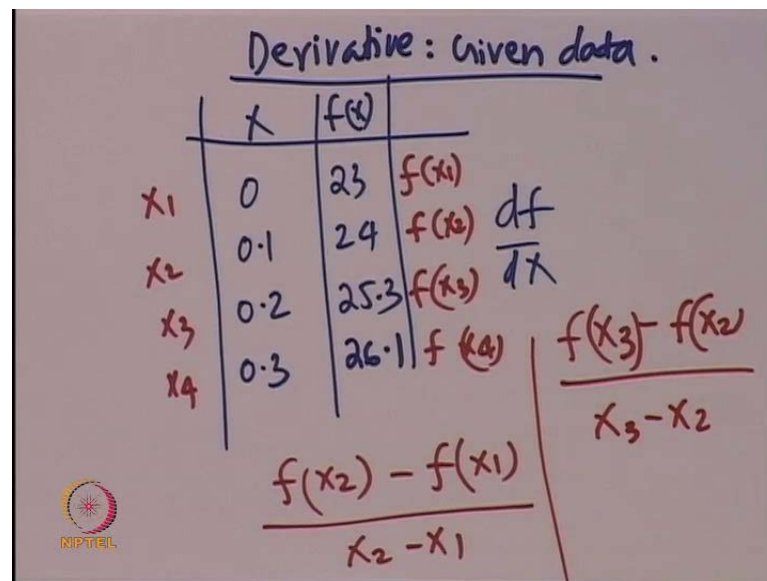 Derivative: Given data.
x f(x)
x1 0 23 f(x1)
x2 0.1 24 f(x2) df
x3 0.2 25.3 f(x3) dx
x4 0.3 26.1 f(x4)
f(x3) - f(x2)
x3 - x2
f(x2) - f(x1)
x2 - x1
NPTEL